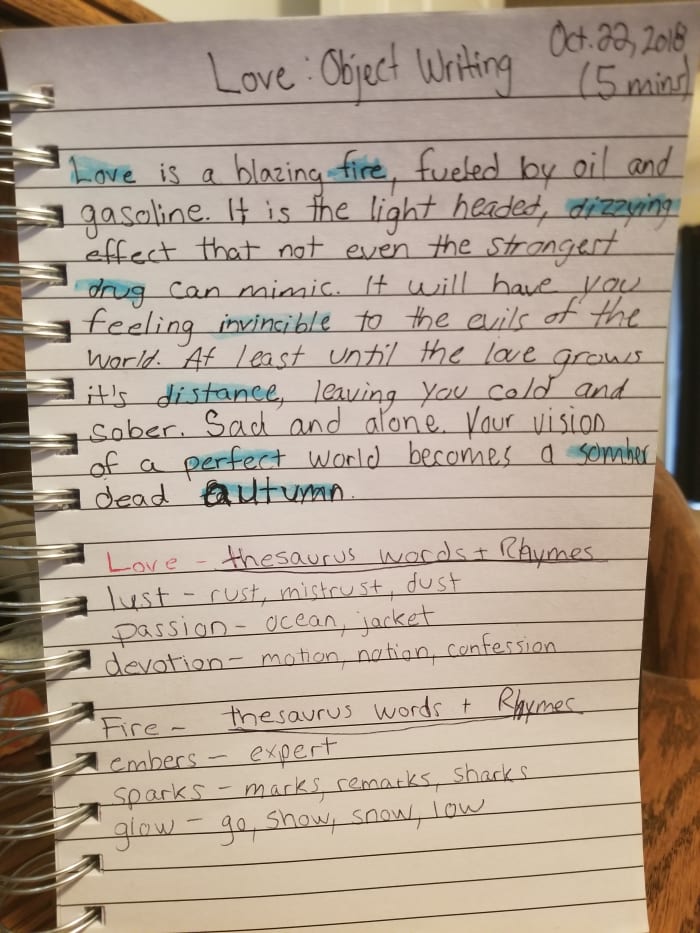 Oct. 22, 2018
Love : Object Writing (5 mins)
Love is a blazing fire, fueled by oil and
gasoline. It is the light headed, dizzying
effect that not even the strongest
drug can mimic. It will have you
feeling invincible to the evils of the
world. At least until the love grows
it's distance, leaving you cold and
sober. Sad and alone. Your vision
of a perfect world becomes a somber
dead autumn.
Love - thesaurus words + Rhymes
lust - rust, mistrust, dust
passion - ocean, jacket
devotion - motion, notion, confession
Fire - thesaurus words + Rhymes
embers - expert
sparks - marks, remarks, sharks
glow - go, show, snow, low